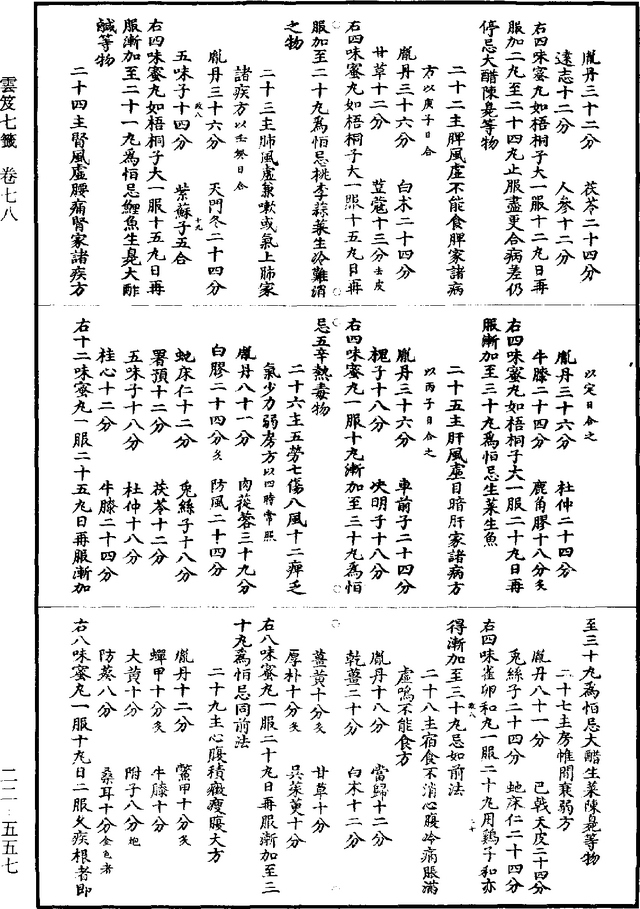 胤丹三十二分　茯苓二十四分
遠志十二分　人參十二分
右四味蜜丸如梧桐子大一服十二丸日再
服加二丸至二十四丸止服盡更合病差仍
停忌大醋陳臭等物
二十二主脾風虛不能食脾家諸病
方以庚子日合
胤丹三十六分　白朮二十四分
甘草十二分　荳蔻十三分去皮
右四味蜜丸如梧桐子大一服十五丸日再
服加至二十丸為恒忌桃李蒜菜生冷難消
之物
二十三主肺風虛兼嗽或氣上肺家
諸疾方以壬癸日合
胤丹三十六分　天門冬二十四分
五味子十四分　紫蘇子五合
右四味蜜丸如梧桐子大一服十五丸日再
服漸加至二十一丸為恒忌鯉魚生臭大酢
鹹等物
二十四主腎風虛腰痛腎家諸疾方
以定日合之
胤丹三十六分　杜仲二十四分
牛膝二十四分　鹿角膠十八分炙
右四味蜜丸如梧桐子大一服二十丸日再
服漸加至三十九為恒忌生菜生魚
二十五主肝風虛目暗肝家諸病方
以丙子日合之
胤丹三十六分　車前子二十四分
槐子十八分　決明子十八分
右四味蜜丸一服十九漸加至三十九為恒
忌五辛熱毒物
二十六主五勞七傷八風十二痺乏
氣少力弱房方以四時常照
胤丹八十一分　肉蓯蓉三十九分
白膠二十四分炙　防風二十四分
蛇床仁十二分　兔絲子十八分
署預十二分　茯苓十二分
五味子十八分　杜仲十八分
桂心十二分　牛膝二十四分
右十二味蜜丸一服二十五丸日再服漸加
至三十九為恒忌大醋生菜陳臭等物
二十七主房帷間衰弱方
胤丹八十一分　巴戟天皮二十四分
兔絲子二十四分　虵床仁二十四分
右四味雀卵和丸一服二十九用鷄子和亦
得漸加至三十九忌如前法
二十八主宿食不消心腹冷痛脹滿
虛鳴不能食方
胤丹十八分　當歸十二分
乾薑二十分　白朮十二分
薑黃十分炙　甘草十分
厚朴十分炙　吳茱萸十分
右八味蜜丸一服二十九日再服漸加至三
十九為恒忌同前法
二十九主心腹積癥瘦腹大方
胤丹十二分　鱉甲十分炙
蟬甲十分炙　牛膝十分
大黃十分　附子八分炮
防葵八分　桑耳十分金色者
右八味蜜丸一服十九日二服久疾根者即
雲笈七籤　卷七八
二二-五五七